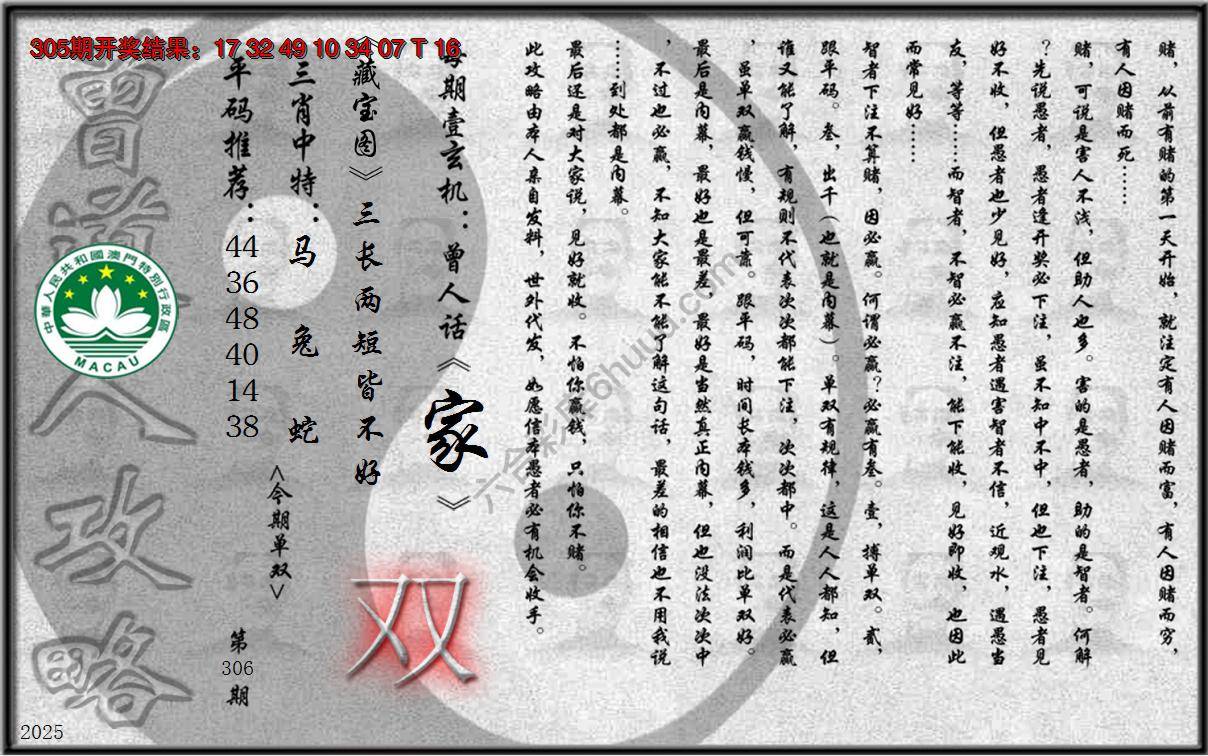 305期开奖结果：17 32 49 10 34 07 T 16
赌，从前有赌的第一天开始，就注定有人因赌而富，有人因赌而穷，
有人因赌而死……
赌，可说是害人不浅，但助人也多。害的是愚者，助的是智者。何解
？先说愚者，愚者逢开奖必下注，虽不知中不中，但也下注，愚者见
好不收，但愚者也少见好，应知愚者遇害智者不信，近观水，遇愚当
友，等等……而智者，不智必赢不注，能下能收，见好即收，也因此
而常见好……
智者下注不算赌，因必赢。何谓必赢？必赢有叁。壹，搏单双。贰，
跟平码。叁，出千（也就是内幕）。单双有规律，这是人人都知，但
谁又能了解，有规则不代表次次都能下注，次次都中。而是代表必赢
，虽单双赢钱慢，但可靠。跟平码，时间长本钱多，利润比单双好。
最后是内幕，最好也是最差，最好是当然真正内幕，但也没法次次中
，不过也必赢，不知大家能不能了解这句话，最差的相信也不用我说
……到处都是内幕。
最后还是对大家说，见好就收。不怕你赢钱，只怕你不赌。
此攻略由本人亲自发料，世外代发，如愿信本愚者必有机会收手。
每期壹玄机：曾人话《家》
《藏宝图》三长两短皆不好
三肖中特：马 兔 蛇
平码推荐：44 36 48 40 14 38
<今期单双>
双
第306期
曾道人攻略
中華人民共和國澳門特別行政區
MACAU
2025
六合彩库6huuu.com